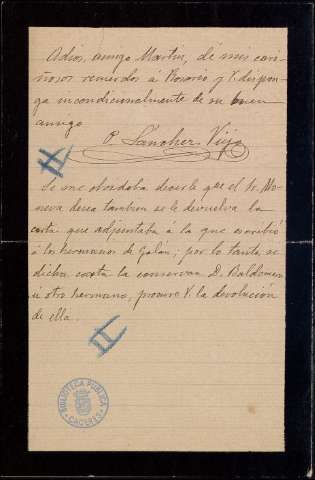 Adios, amigo Martin, dé mis cari-
ñosos recuerdos á Rosario y V. dispon-
ga incondicionalmente de su buen
amigo
P. Sanchez Viejo
Se me olvidaba decirle que el Sr. Mo-
neva desea tambien se le devuelva la
carta que adjuntaba á la que escribió
á los hermanos de Galán; por lo tanto, si
dicha carta la conservan D. Baldomero
ú otro hermano, procure V. la devolución
de ella.
BIBLIOTECA PUBLICA
CACERES